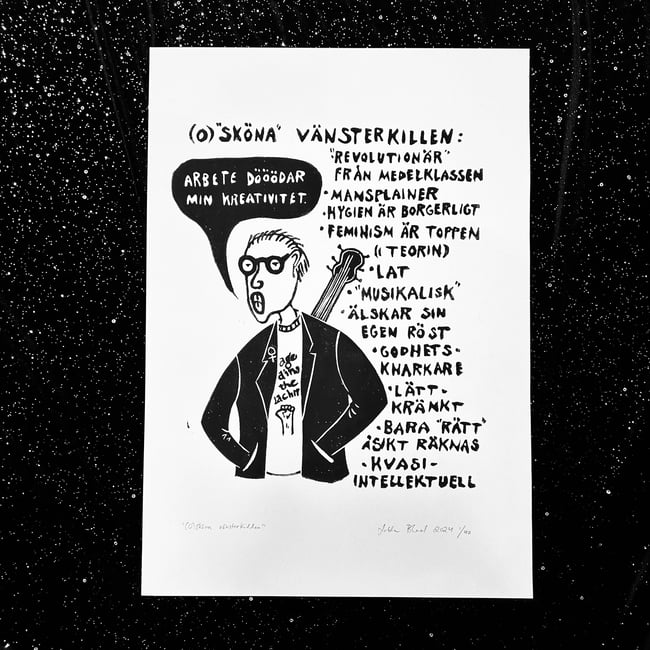 (O)"SKÖNA" VÄNSTERKILLEN:
"REVOLUTIONÄR"
FRÅN MEDELKLASSEN
• MANSPLAINER
• HYGIEN ÄR BORGERLIGT
• FEMINISM ÄR TOPPEN
(I TEORIN)
• LAT
• "MUSIKALISK"
• ÄLSKAR SIN
EGEN RÖST
• GODHETS-
KNARKARE
• LÄTT-
KRÄNKT
• BARA "RÄTT"
ÅSIKT RÄKNAS
• KVASI-
INTELLEKTUELL
ARBETE DÖÖÖDAR
MIN KREATIVITET.
the
"(O)Sköna vänsterkillen"
2024